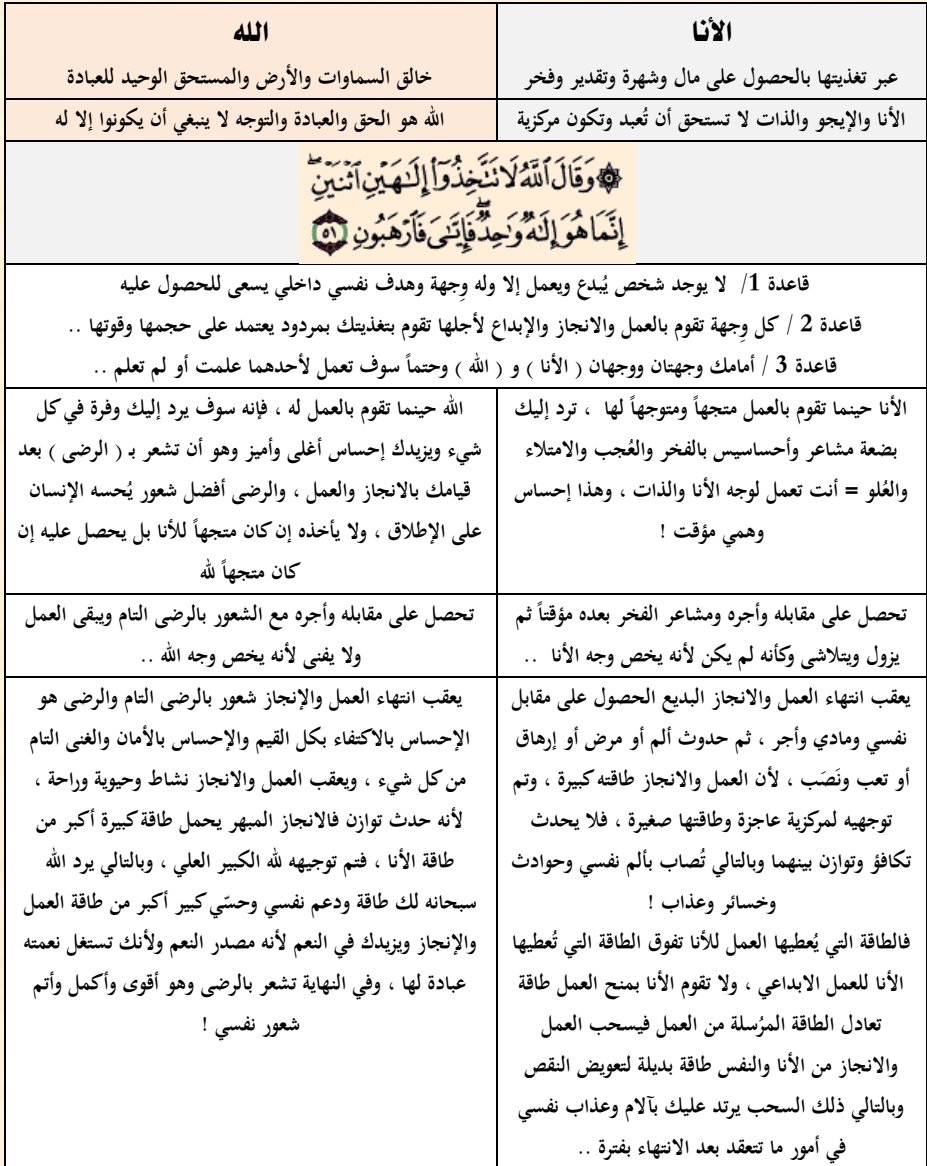 الأنا
عبر تغذيتها بالحصول على مال وشهرة وتقدير وفخر
الله
خالق السماوات والأرض والمستحق الوحيد للعبادة
الأنا والإيجو والذات لا تستحق أن تُعبد وتكون مركزية
الله هو الحق والعبادة والتوجه لا ينبغي أن يكونوا إلا له
۞ وَقَالَ ٱللَّهُ لَا تَتَّخِذُوٓا۟ إِلَـٰهَيْنِ ٱثْنَيْنِ ۖ
إِنَّمَا هُوَ إِلَـٰهٌ وَٰحِدٌ ۖ فَإِيَّـٰىَ فَٱرْهَبُونِ ٥١
قاعدة 1/ لا يوجد شخص يُبدع ويعمل إلا وله وِجهة وهدف نفسي داخلي يسعى للحصول عليه
قاعدة 2 / كل وِجهة تقوم بالعمل والانجاز والإبداع لأجلها تقوم بتغذيتك بمردود يعتمد على حجمها وقوتها ..
قاعدة 3 / أمامك وجهتان ووجهان ( الأنا ) و ( الله ) وحتماً سوف تعمل لأحدهما علمت أو لم تعلم ..
الأنا حينما تقوم بالعمل متجهاً ومتوجهاً لها ، ترد إليك
بضعة مشاعر وأحساسيس بالفخر والعُجب والامتلاء
والعُلو = أنت تعمل لوجه الأنا والذات ، وهذا إحساس
وهمي مؤقت !
الله حينما تقوم بالعمل له ، فإنه سوف يرد إليك وفرة في كل
شيء ويزيدك إحساس أغلى وأميز وهو أن تشعر بـ ( الرضى ) بعد
قيامك بالانجاز والعمل ، والرضى أفضل شعور يُحسه الإنسان
على الإطلاق ، ولا يأخذه إن كان متجهاً للأنا بل يحصل عليه إن
كان متجهاً لله
تحصل على مقابله وأجره ومشاعر الفخر بعده مؤقتاً ثم
يزول ويتلاشى وكأنه لم يكن لأنه يخص وجه الأنا ..
تحصل على مقابله وأجره مع الشعور بالرضى التام ويبقى العمل
ولا يفنى لأنه يخص وجه الله ..
يعقب انتهاء العمل والانجاز البديع الحصول على مقابل
نفسي ومادي وأجر ، ثم حدوث ألم أو مرض أو إرهاق
أو تعب ونَصَب ، لأن العمل والانجاز طاقته كبيرة ، وتم
توجهيه لمركزية عاجزة وطاقتها صغيرة ، فلا يحدث
تكافؤ وتوازن بينهما وبالتالي تُصاب بألم نفسي وحوادث
وخسائر وعذاب !
فالطاقة التي يُعطيها العمل للأنا تفوق الطاقة التي تُعطيها
الأنا للعمل الابداعي ، ولا تقوم الأنا بمنح العمل طاقة
تعادل الطاقة المرُسلة من العمل فيسحب العمل
والانجاز من الأنا والنفس طاقة بديلة لتعويض النقص
وبالتالي ذلك السحب يرتد عليك بآلام وعذاب نفسي
في أمور ما تتعقد بعد الانتهاء بفترة ..
يعقب انتهاء العمل والإنجاز شعور بالرضى التام والرضى هو
الإحساس بالاكتفاء بكل القيم والإحساس بالأمان والغنى التام
من كل شيء ، ويعقب العمل والانجاز نشاط وحيوية وراحة ،
لأنه حدث توازن فالانجاز المبهر يحمل طاقة كبيرة أكبر من
طاقة الأنا ، فتم توجيهه لله الكبير العلي ، وبالتالي يرد الله
سبحانه لك طاقة ودعم نفسي وحسّي كبير أكبر من طاقة العمل
والإنجاز ويزيدك في النعم لأنه مصدر النعم ولأنك تستغل نعمته
عبادة لها ، وفي النهاية تشعر بالرضى وهو أقوى وأكمل وأتم
شعور نفسي !